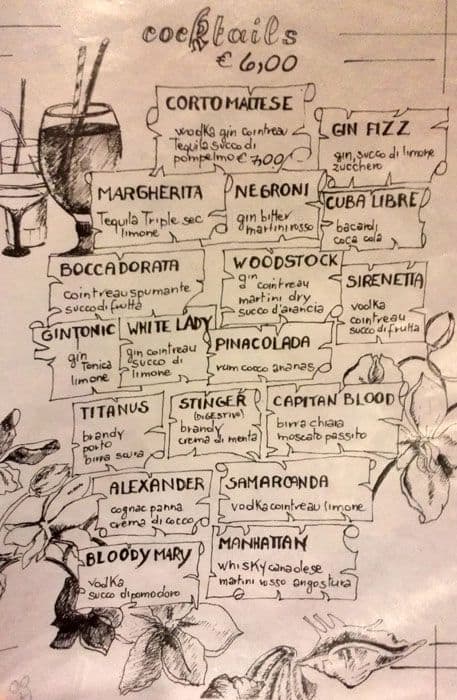 cocktails
€ 6,00
CORTO MALTESE
wodka gin cointreau
Tequila succo di
pompelmo € 7,00
GIN FIZZ
gin, succo di limone
zucchero
MARGHERITA
Tequila Triple sec
limone
NEGRONI
gin bitter
martini rosso
CUBA LIBRE
bacardi
coca cola
BOCCADORATA
cointreau spumante
succo di frutta
WOODSTOCK
gin
cointreau
martini dry
succo d'arancia
SIRENETTA
vodka
cointreau
succo di frutta
GIN TONIC
gin
Tonica
limone
WHITE LADY
gin cointreau
succo di
limone
PINACOLADA
rum cocco ananas
TITANUS
brandy
porto
birra scura
STINGER
(DIGESTIVO)
brandy
crema di menta
CAPITAN BLOOD
birra chiara
moscato passito
ALEXANDER
cognac panna
crema di cocco
SAMARCANDA
vodka cointreau limone
BLOODY MARY
vodka
succo di pomodoro
MANHATTAN
whisky canadese
martini rosso angostura